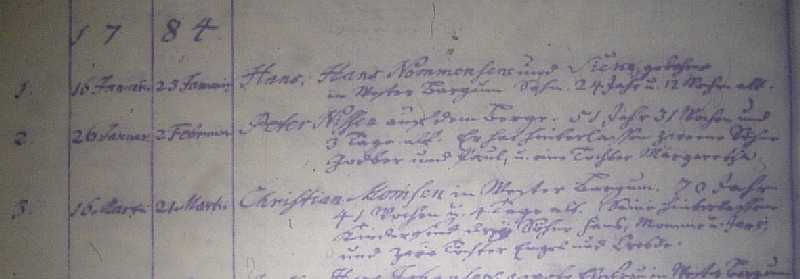 1784
1. 16 Januar 25 Januar Hans, Hans Nommensens und Sicken gebohre
in Wester Bargum Sohn. 24 Jahr u. 12 Wochen alt.
2. 26 Januar 2 Februar Peter Nissen auf dem Berge. 51 Jahr 31 Wochen und
3 Tage alt. Er hat hinterlassen zweene Söhne
Godber und Paul, u. eine Tochter Margaretha.
3. 16 Martii 21 Martii Christian Momsen in Wester Bargum. 70 Jahr
41 Wochen u. 4 Tage alt. Seine hinterlassene
Kinder sind drey Söhne Hans, Momme u.
und zwo Töchter Engel und
in Wester Bargum